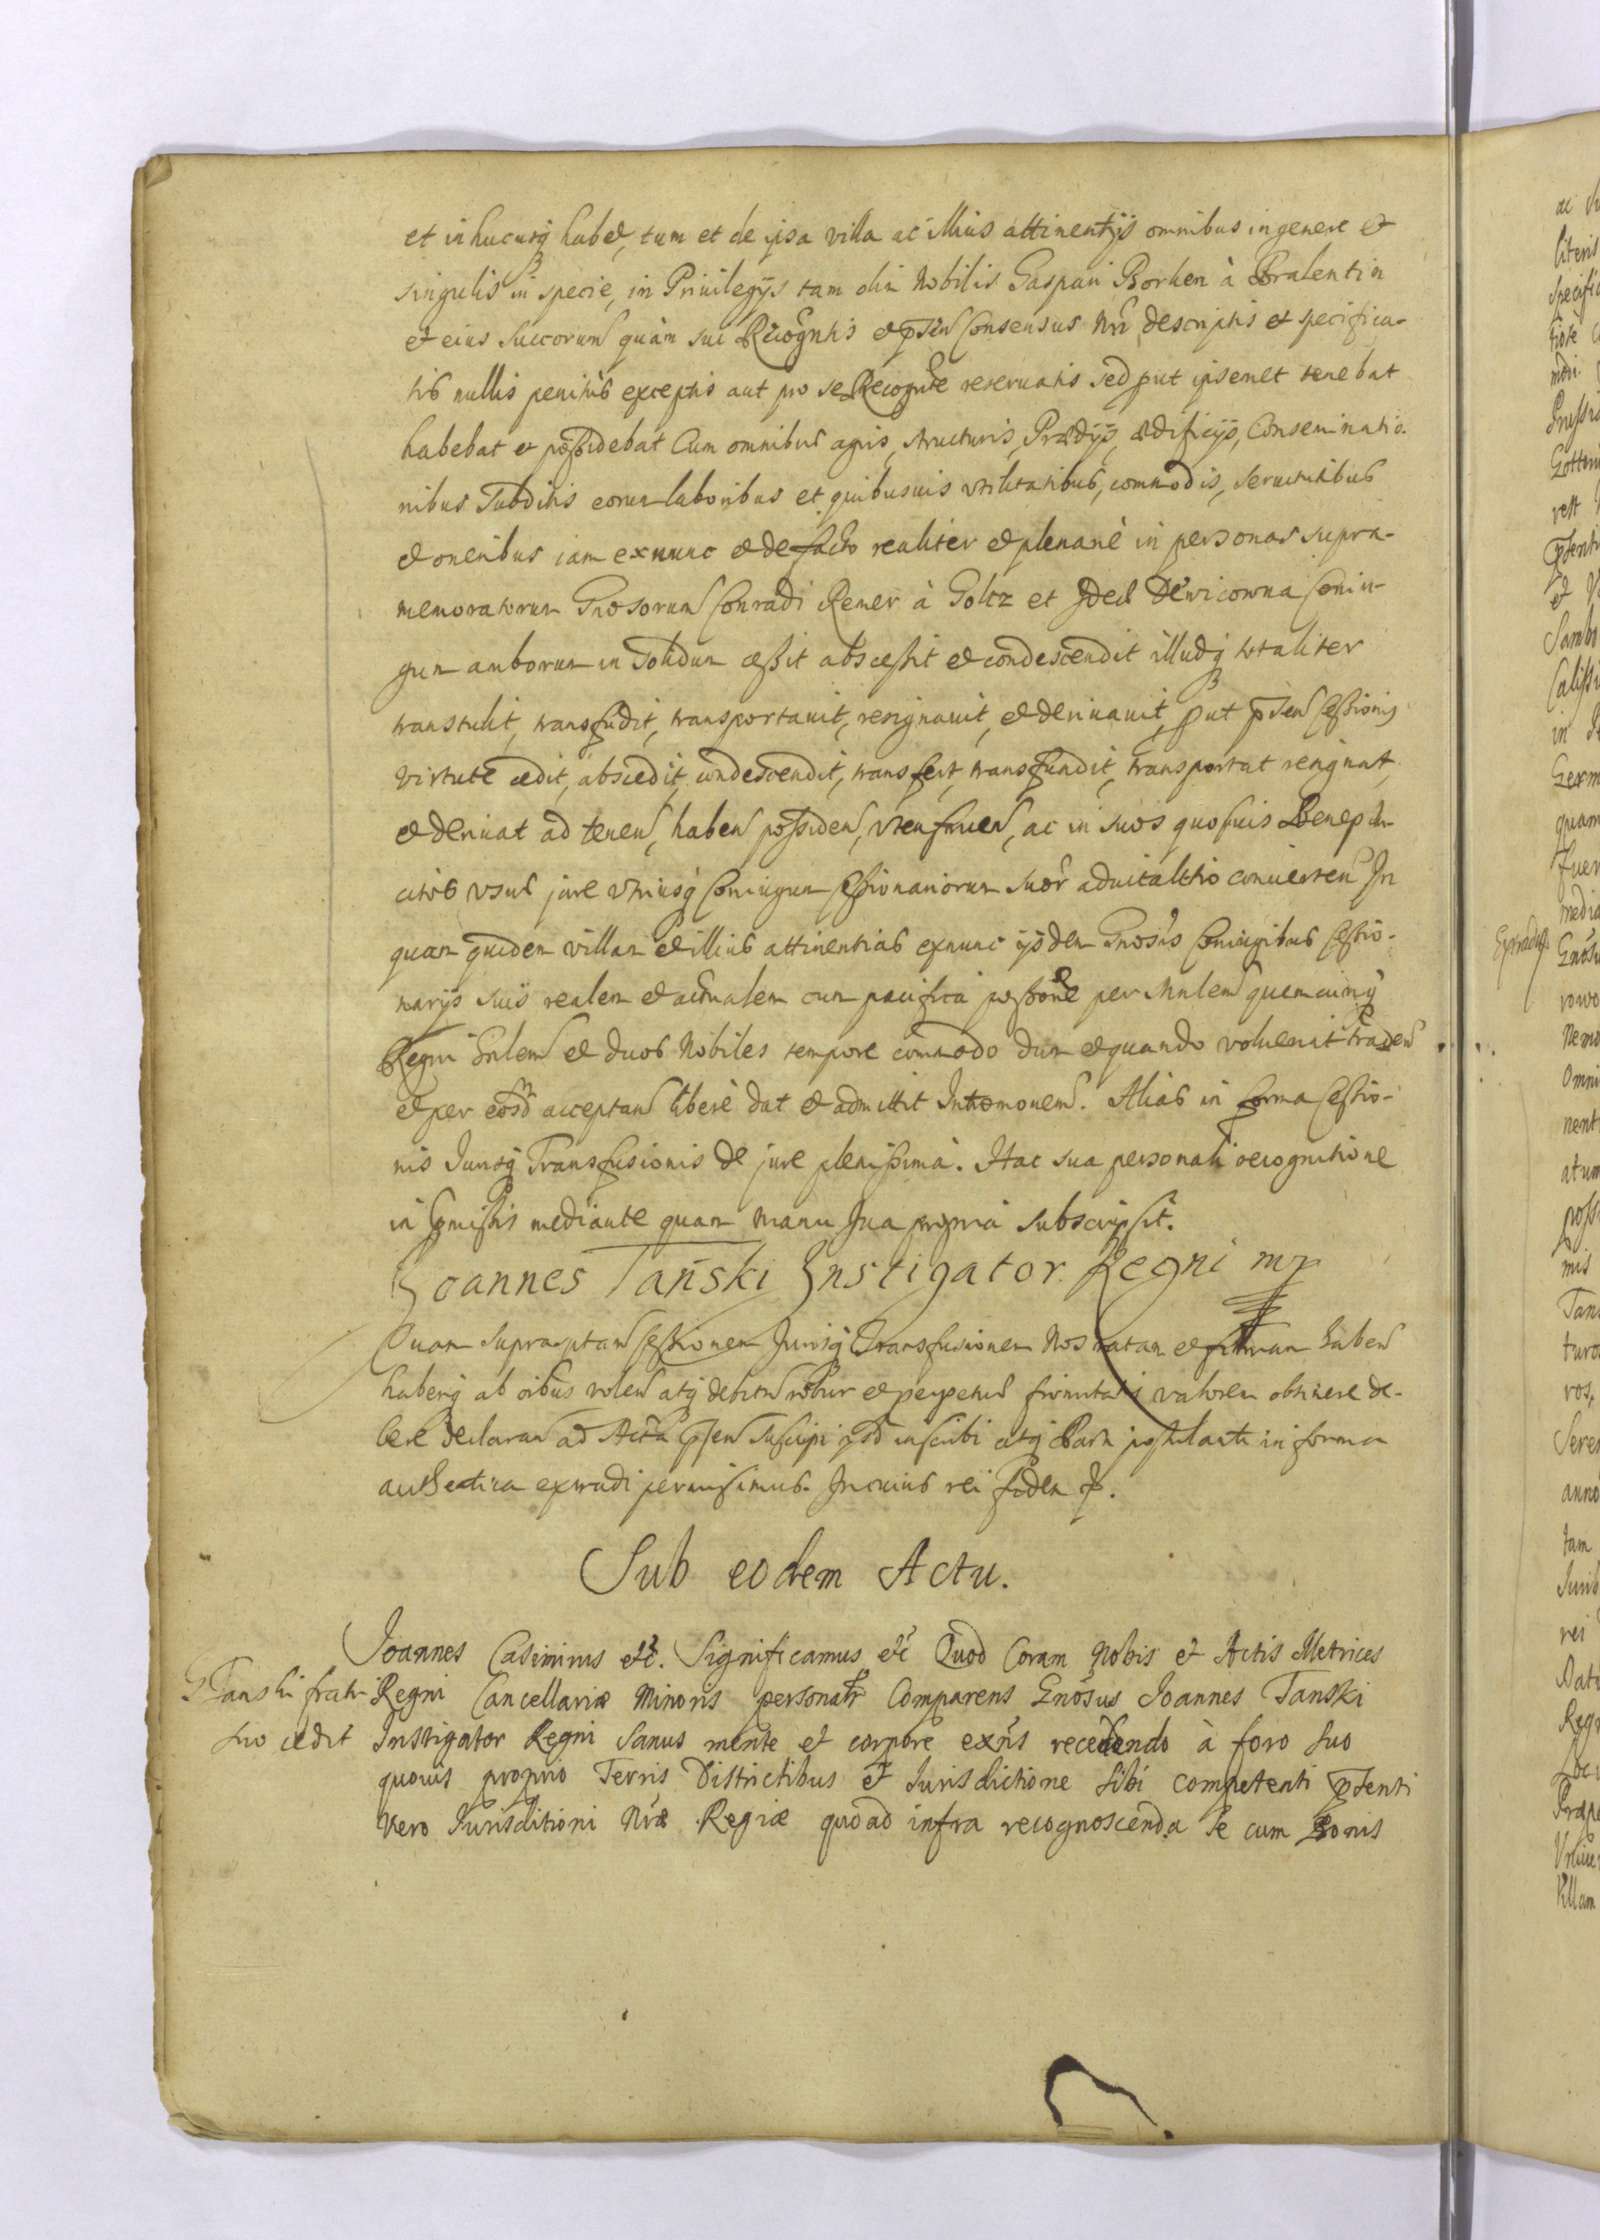 et in hucusq habet, tum et de ipsa villa ac illius attinentijs omnibus in genere et
singulis in specie, in Priuilegijs tam olim Nobilis Gaspari Borken à Bralentin
et eius Succorum quàm sui Recogntis et pñtis Consensus Nri descriptis et specifica-
tis nullis penitùs exceptis aut pro se Recognte reseruatis sed put ipsemet tenebat
habebat et possidebat Cum omnibus agris, structuris, Prædijs, ædificijs, Conseminatio-
nibus Subditis eorum laboribus et quibusuis vtilitatibus, commodis, seruitutibus
et oneribus iam ex nunc et de facto realiter et plenariè in personas supra-
memoratorum Gnosorum Conradi Remer à Goltz et Dewicowna Coniu-
gum amborum in solidum cessit abscessit et condescendit illudq totaliter
transtulit, transfudit, transportauit, resignauit, et deriuauit, put psen Cessionis
virtute cedit, abscedit, condescendit, transfert, transfundit, transportat resignat
et deriuat ad tenen, haben possiden, vten fruen, ac in suos quosuis Benepla-
citos vsus jure vtriusq Coniugum Cessionariorum suor aduitalitio conuerten In
quam quidem villam et illius attinentias exnunc ijsdem Gnosis Coniugibus Cessio-
narijs suis realem et actualem cum pacifica possone per Mnlem quemcunq
Regni Gnlem et duos Nobiles tempore commodo dum et quando voluerit traden
et per eosd acceptan liberè dat et admittit Intromonem. Alias in forma Cessio-
nis Jurisq Transfusionis de jure plenissima. Hac sua personali recognitione
in pmissis mediante quam manu sua propria subscripsit.
Joannes Tański Instigator Regni mp
Quam suprascptam Cessionem Jurisq Transfusionem Nos ratam et firmam haben
haberiq ab oibus volen atq debitum robur et perpetuæ firmitatis valorem obtinere de-
bere declaran ad Acta psen suscipi ijsd inscribi atq Parti postulanti in forma
authentica extradi permisimus. In cuius rei fidem p.
Sub eodem Actu.
Joannes Casimirus etc. Significamus etc Quod Coram Nobis et Actis Metrices
G Tanski fratri
suo cedit
Regni Cancellariæ Minoris personalr Comparens Gnosus Joannes Tanski
Instigator Regni Sanus mente et corpore exns recedendo à foro suo
quouis proprio Terris Districtibus et Jurisdictione sibi competenti psenti
vero Jurisditioni Nræ Regiæ quoad infra recognoscenda se cum bonis
Extradit